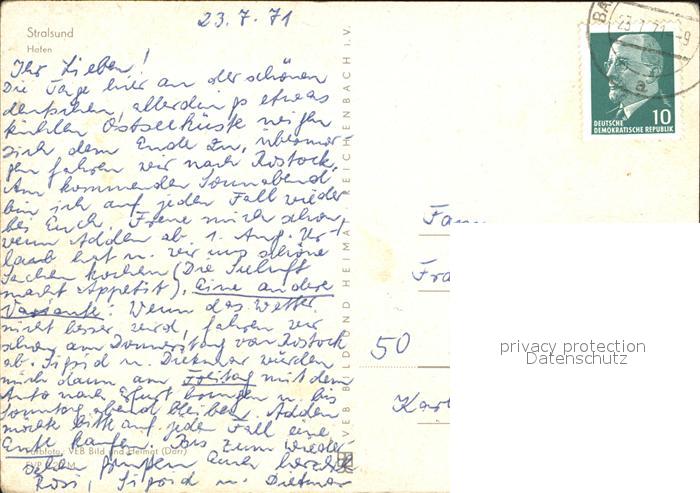 23.7.71
Stralsund
Hafen
Ihr Lieben!
Die Tage hier an der schönen
deutschen, allerdings etwas
kühlen Ostseeküste neigen
sich dem Ende zu, übermor-
gen fahren wir nach Rostock.
Am kommenden Sonnabend
bin ich auf jeden Fall wieder
bei Euch. Freue mich schon,
wenn Adden ab 1. Aug. Ur-
laub hat u. wir uns schöne
Sachen kochen (Die Seeluft
macht Appetit). Eine andere
Variante: Wenn das Wetter
nicht besser wird, fahren wir
schon am Donnerstag von Rostock
ab. Sigrid u. Dietmar würden
mich dann am Freitag mit dem
Auto nach Erfurt bringen u. bis
Sonntag abend bleiben. Adden
möchte bitte auf jeden Fall eine
Ente kaufen. Bis zum Wieder-
sehen grüßen Euch herzl.
Rosi, Sigrid u. Dietmar
Farbfoto: VEB Bild und Heimat (Darr)
VEB BILD UND HEIMAT REICHENBACH i. V.
23.7.71-9
a
10
DEUTSCHE
DEMOKRATISCHE REPUBLIK
Fam
Fra
50
Karl
privacy protection
Datenschutz